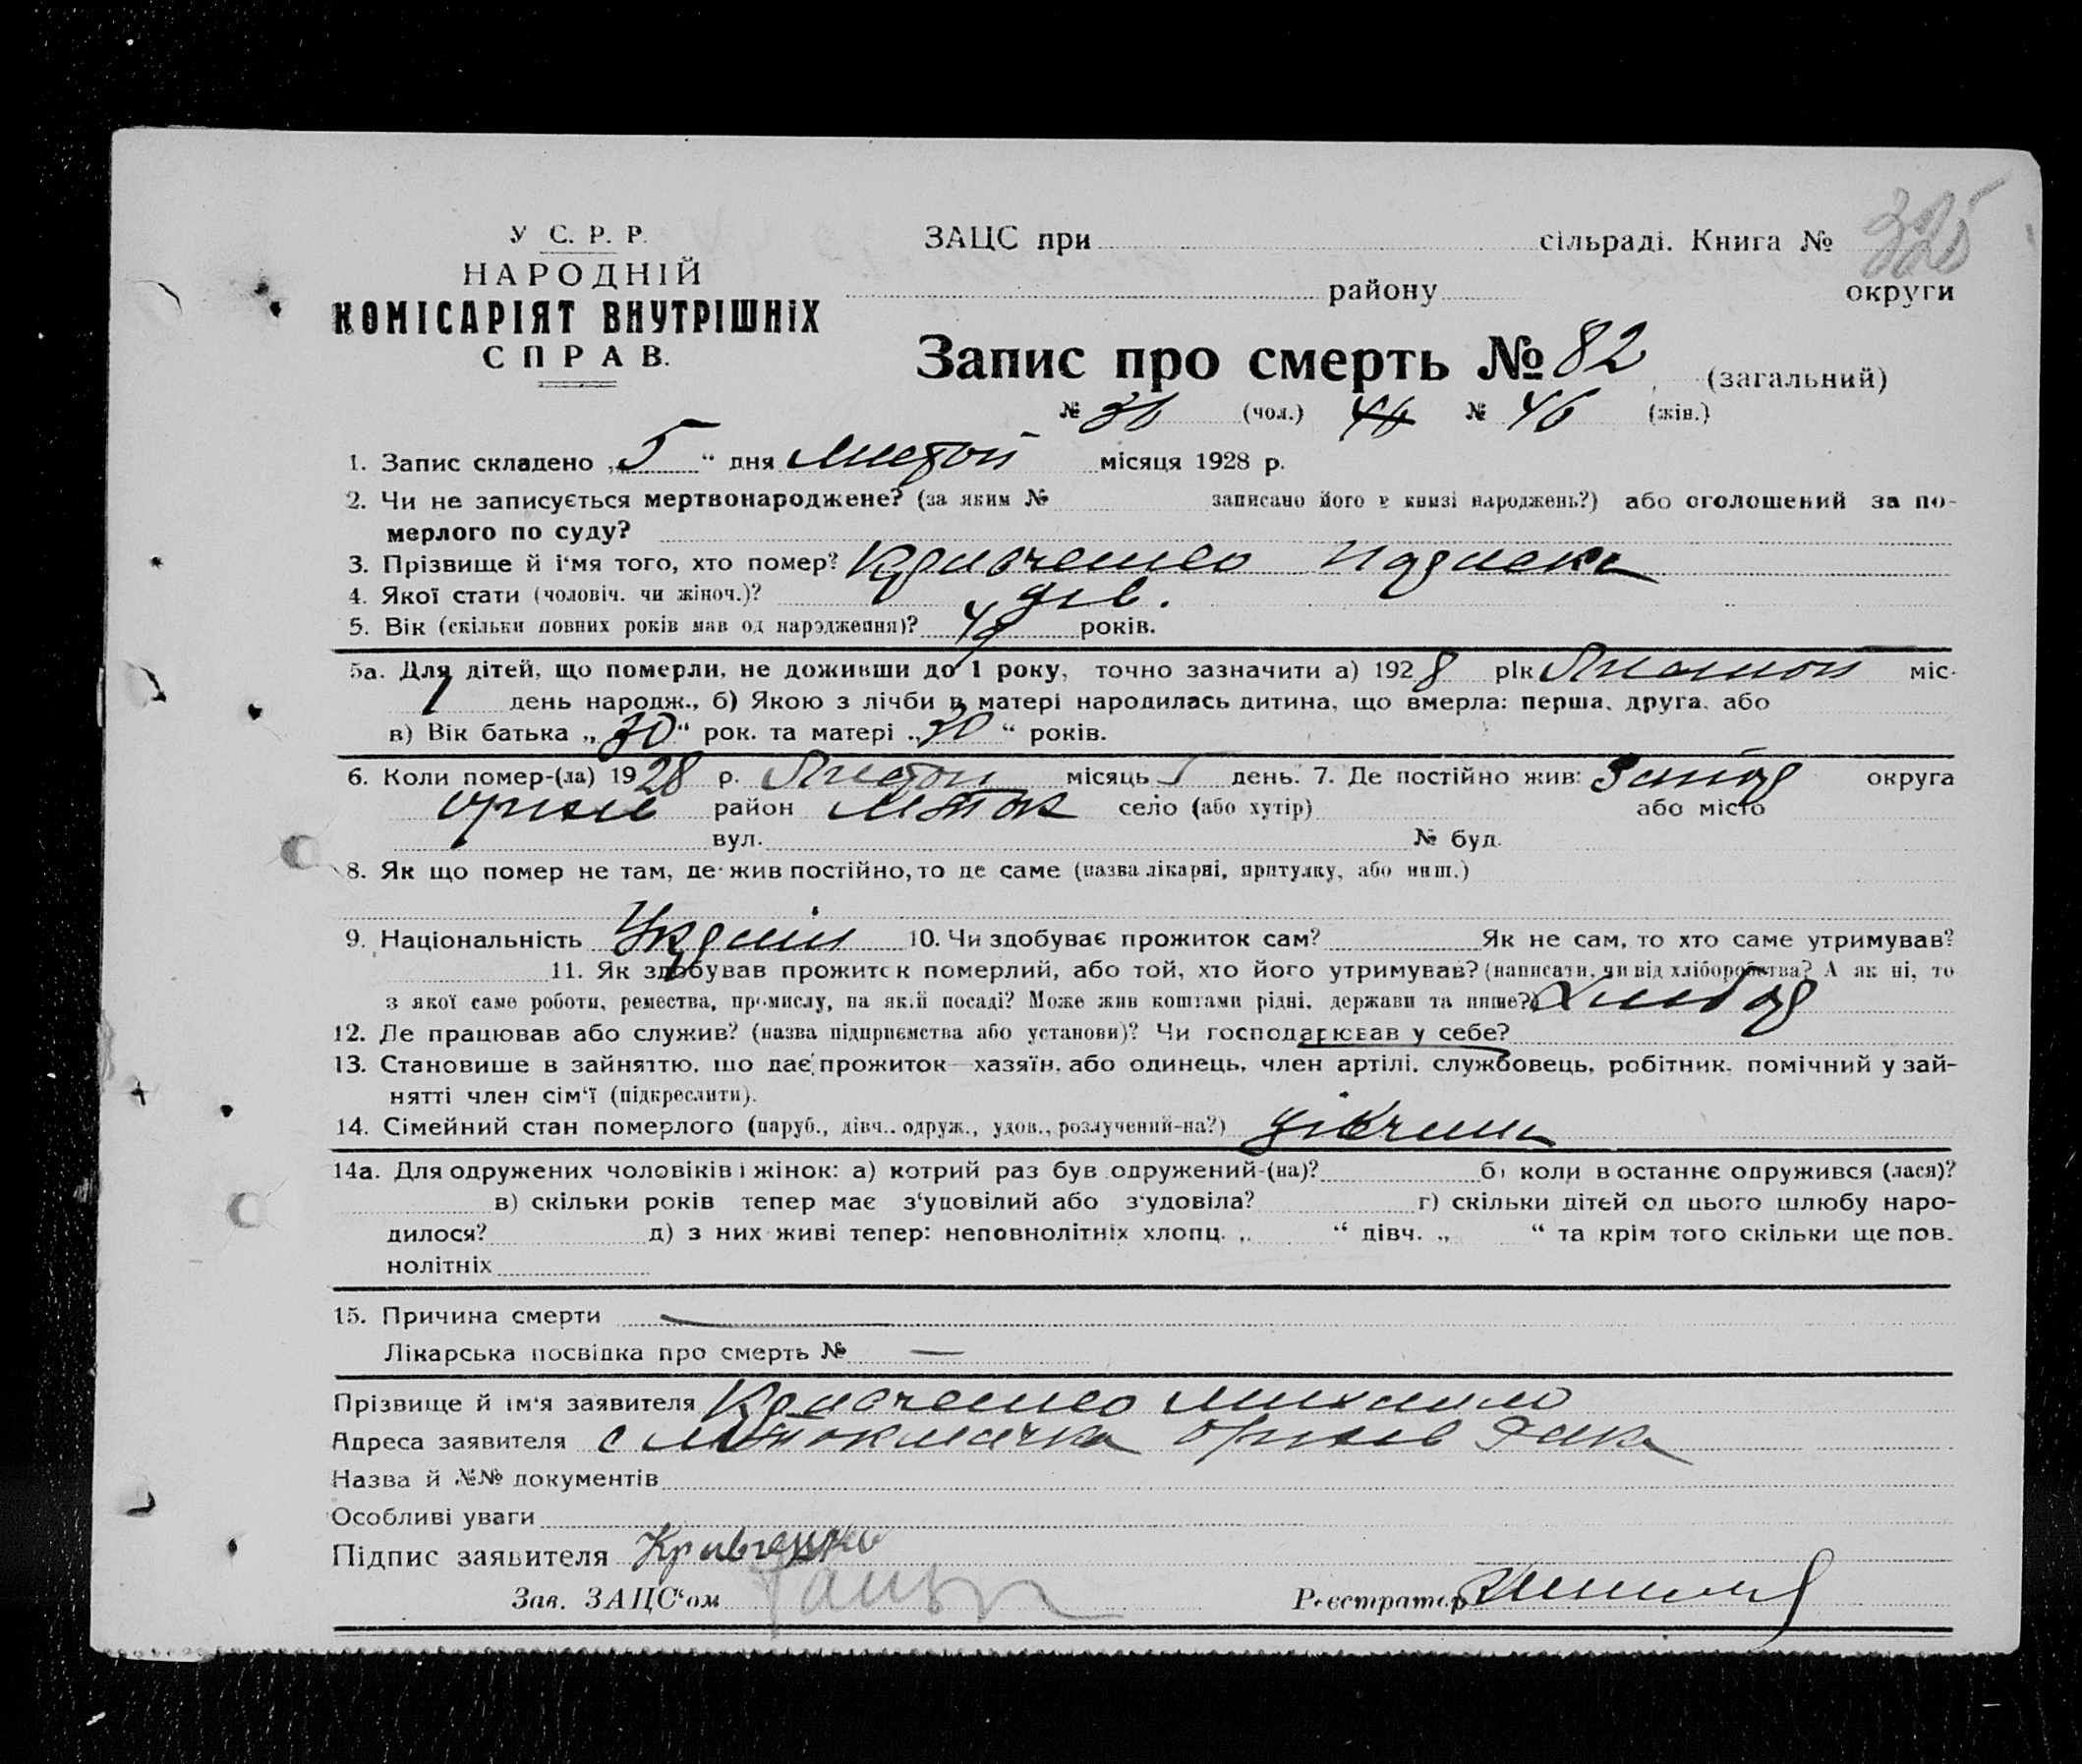 325
У С. Р. Р.
НАРОДНІЙ
КОМІСАРІЯТ ВНУТРІШНІХ
СПРАВ.
ЗАЦС при сільраді. Книга №
району округи
Запис про смерть № 82 (загальний)
№ 36 (чол.) № 46 (жін.)
1. Запис складено „5“ дня Листоп місяця 1928 р.
2. Чи не записується мертвонароджене? (за яким № записано його в книзі народжень?) або оголошений за по-
мерлого по суду?
3. Прізвище й і'мя того, хто помер? Кравченко
4. Якої стати (чоловіч. чи жіноч.)?
5. Вік (скільки повних років мав од народження)? років.
5а. Для дітей, що померли, не доживши до 1 року, точно зазначити а) 1928 рік міс.
1 день народж., б) Якою з лічби в матері народилась дитина, що вмерла: перша, друга, або
в) Вік батька „30“ рок. та матері „30“ років.
6. Коли помер-(ла) 1928 р. Листоп місяць 5 день. 7. Де постійно жив: Запор округа
Оріхів район село (або хутір) або місто
вул. № буд.
8. Як що помер не там, де жив постійно, то де саме (назва лікарні, притулку, або инш.)
9. Національність 10. Чи здобуває прожиток сам? Як не сам, то хто саме утримував?
11. Як здобував прожиток померлий, або той, хто його утримував? (написати, чи від хліборобства? А як ні, то
з якої саме роботи, ремества, промислу, на якій посаді? Може жив коштами рідні, держави та инше?)
12. Де працював або служив? (назва підприємства або установи)? Чи господарював у себе?
13. Становише в зайняттю, що дає прожиток—хазяїн, або одинець, член артілі, службовець, робітник, помічний у зай-
нятті член сім'ї (підкреслити).
14. Сімейний стан померлого (паруб., дівч., одруж., удов., розлучений-на?) дівчина
14а. Для одружених чоловіків і жінок: а) котрий раз був одружений-(на)? б) коли в останнє одружився (лася)?
в) скільки років тепер має з'уповілий або з'удовіла? г) скільки дітей од цього шлюбу наро-
дилося? д) з них живі тепер: неповнолітніх хлопц. „ “ дівч. „ “ та крім того скільки ще пов.
нолітніх
15. Причина смерти —
Лікарська посвідка про смерть № —
Прізвище й ім'я заявителя Кравченко Михайло
Адреса заявителя с Оріхів
Назва й №№ документів
Особливі уваги
Підпис заявителя Кравченко
Зав. ЗАЦС'ом Реєстратор